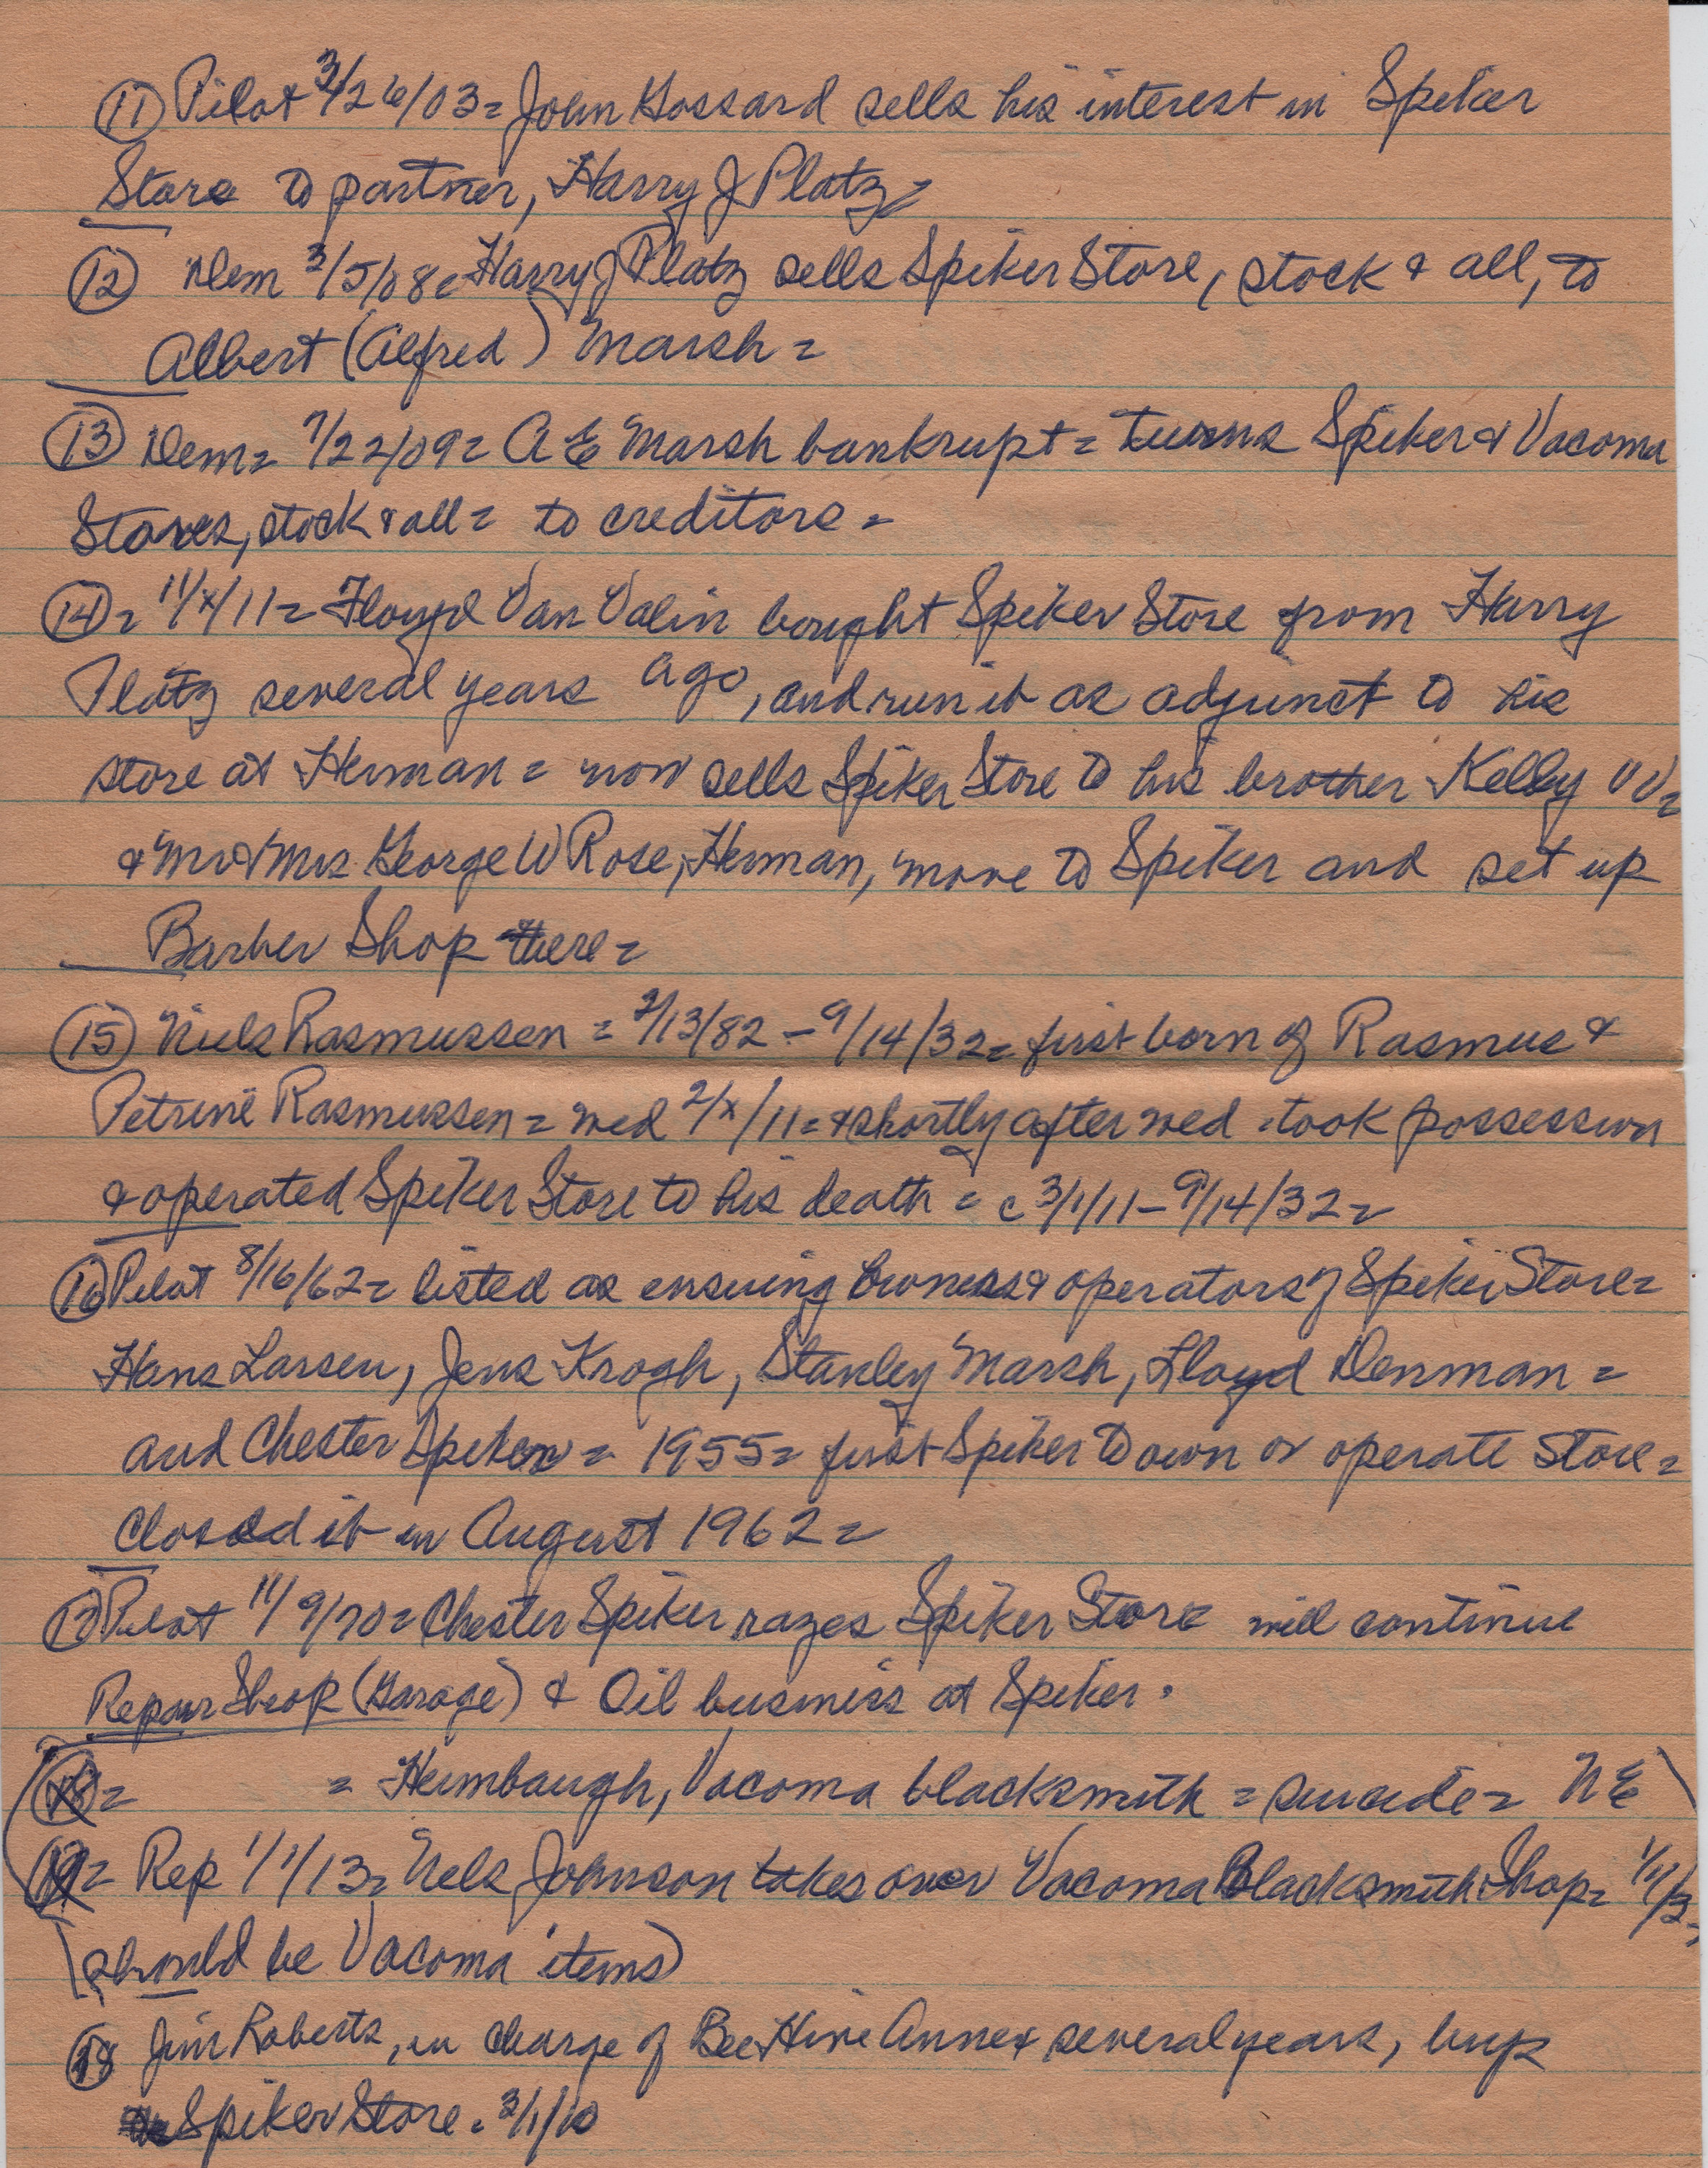 (11) Pilot 3/26/03 = John Gossard sells his interest in Spiker
Store to partner, Harry J Platz =
(12) Dem 3/5/08 = Harry J Platz sells Spiker Store, stock & all, to
Albert (Alfred) Marsh =
(13) Dem = 7/22/09 = A E Marsh bankrupt = turns Spiker & Vacoma
Stores, stock & all = to creditors =
(14) = 11/x/11 = Floyd Van Valin bought Spiker Store from Harry
Platz several years ago, and run it as adjunct to his
store at Herman = now sells Spiker Store to his brother Kelly VV =
& Mr & Mrs George W Rose, Herman, move to Spiker and set up
Barber Shop there =
(15) Niels Rasmussen = 2/13/82 - 9/14/32 = first born of Rasmus &
Petrine Rasmussen = wed 2/x/11 = & shortly after wed took possession
& operated Spiker Store to his death = c 3/1/11 - 9/14/32 =
(16) Pilot 8/16/62 = listed as ensuing owners & operators of Spiker Store =
Hans Larsen, Jens Krogh, Stanley Marsh, Lloyd Denman =
and Chester Spiker = 1955 = first Spiker to own or operate store =
closed it in August 1962 =
(17) Pilot 11/9/70 = Chester Spiker razes Spiker Store will continue
Repair Shop (Garage) & Oil business at Spiker.
(18) = = Heimbaugh, Vacoma blacksmith = suicide = N E
(19) = Rep 1/1/13 = Nels Johnson takes over Vacoma Blacksmith Shop = 1/1/13 =
(should be Vacoma items)
(18) Jim Roberts, in charge of Bee Hive Annex several years, buys
Spiker Store = 3/1/10